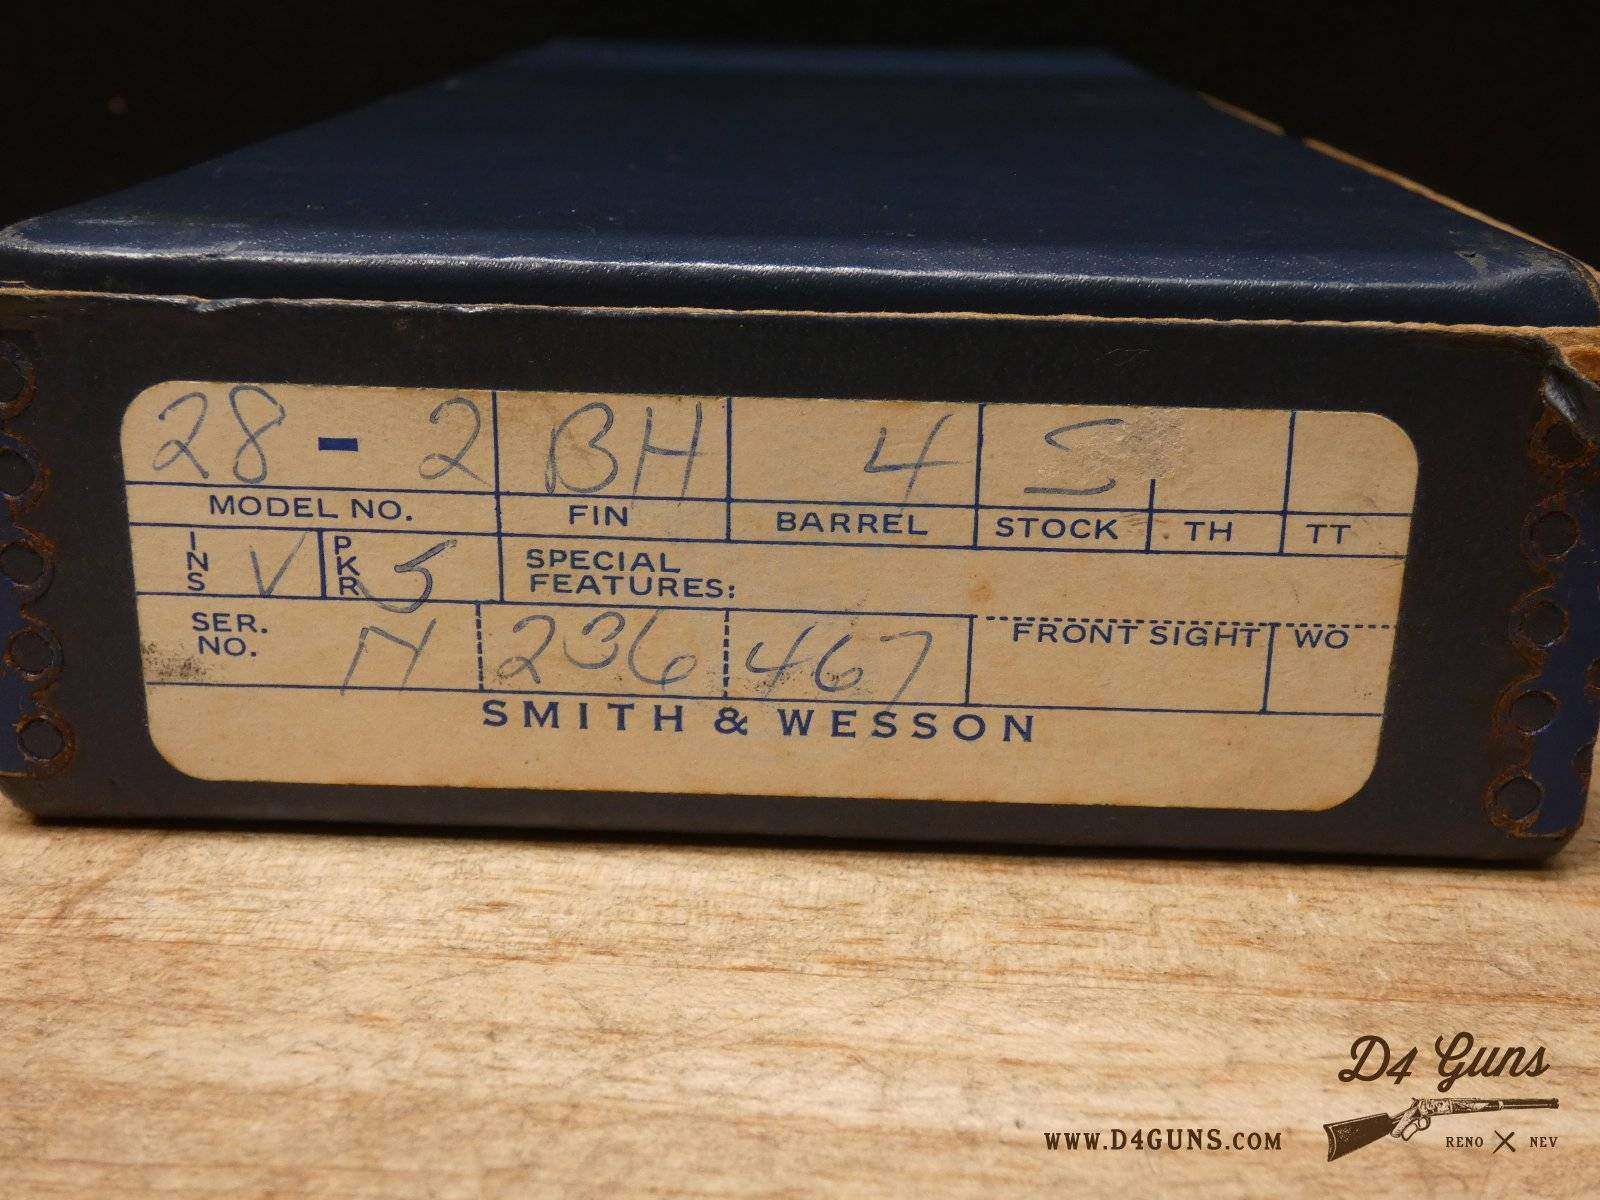 28 - 2 BH 4 S
MODEL NO. FIN BARREL STOCK TH TT
INS V PKR 5 SPECIAL
FEATURES:
SER.
NO. N 236 467 FRONT SIGHT WO
SMITH & WESSON
D4 Guns
WWW.D4GUNS.COM RENO NEV